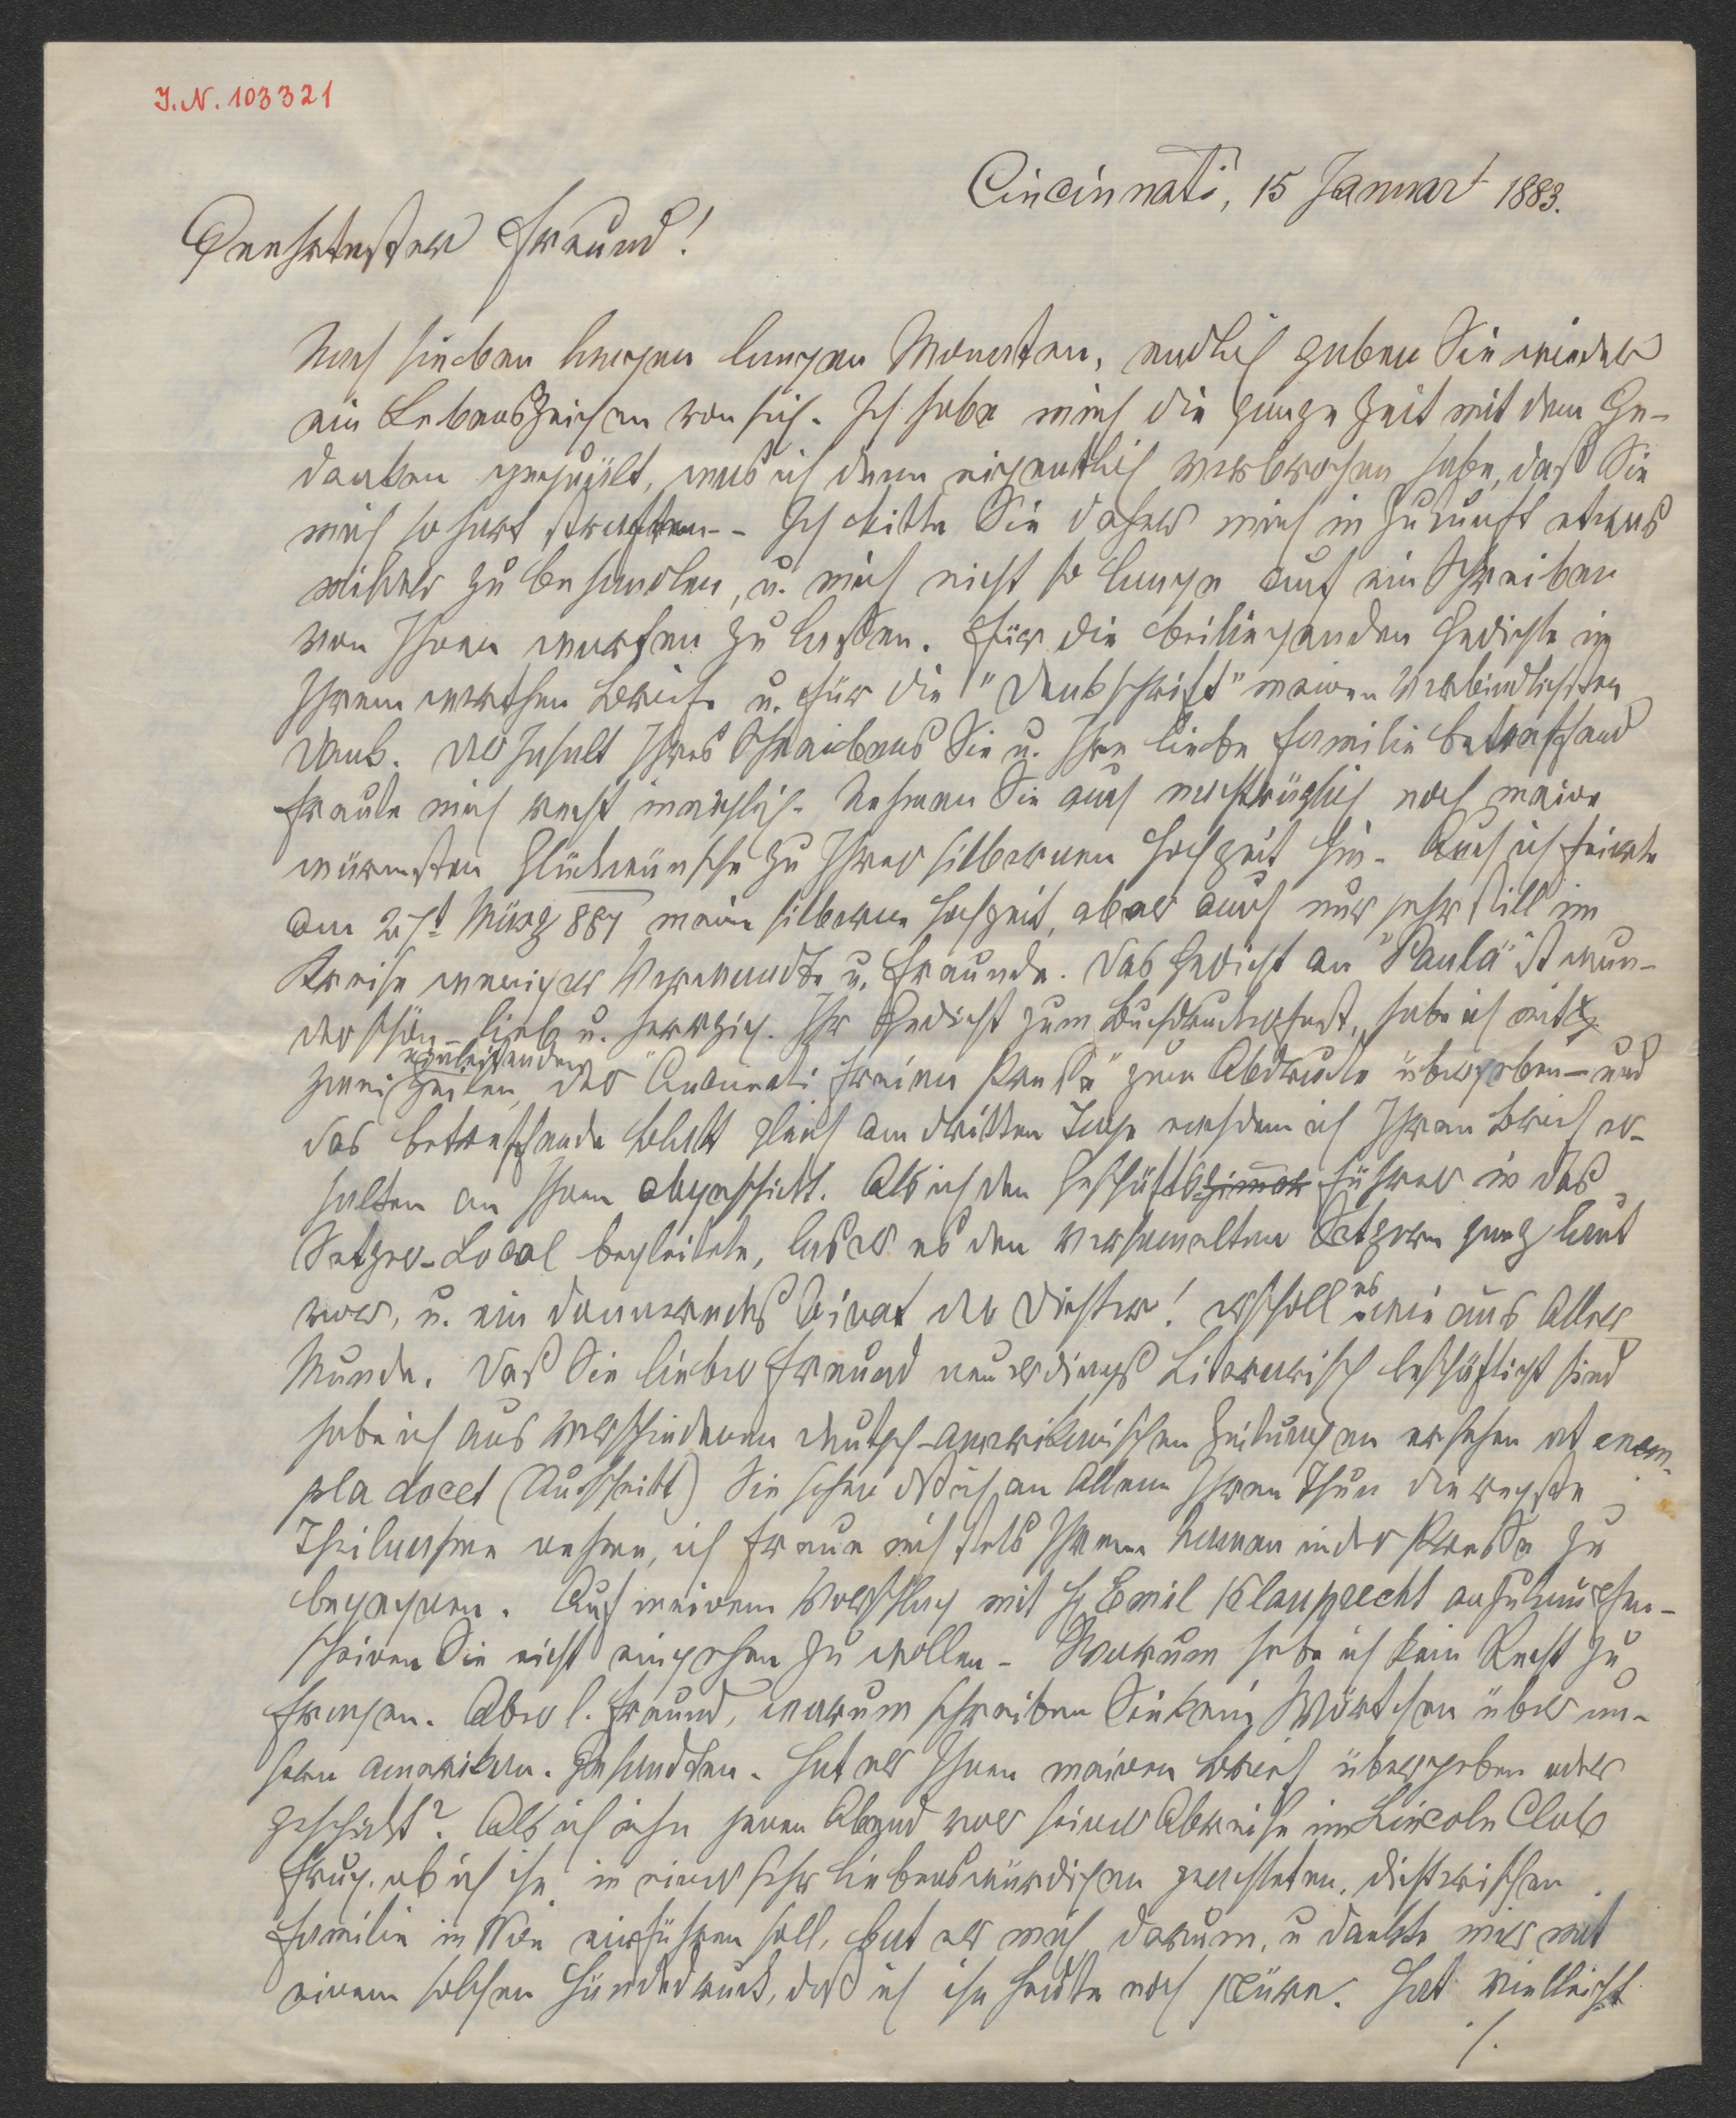 J.N. 103321
Cincinnati, 15 Januar 1883.
Geehrtester Freund!
Nach sieben langen langen Monaten, endlich geben Sie wieder
ein Lebenszeichen von sich. Ich habe mich die ganze Zeit mit dem Ge-
danken gequält, was ich denn eigentlich verbrochen habe, daß Sie
mich so hart straften - Ich bitte Sie daher mich in Zukunft etwas
milder zu behandeln, u. mich nicht so lange auf ein Schreiben
von Ihnen warten zu lassen. Für die beiliegenden Gedichte in
Ihrem werthen Briefe u. für die "Denkschrift" meinen verbindlichsten
Dank. Der Inhalt Ihres Schreibens Sie u. Ihre liebe Familie betreffend
freute mich recht inniglich. Nehmen Sie auch nachträglich noch meine
wärmsten Glückwünsche zu Ihrer silbernen Hochzeit hin. Auch ich feierte
am 27t März 881 meine silberne Hochzeit, aber auch nur sehr still im
Kreise weniger Verwandte u. Freunde. Das Gedicht an "Paula" ist wun-
derschön - lieb u. herzig. Ihr Gedicht zum Buchdruckerfest, habe ich mit
zwei einleitenden Zeilen, der "Cincinnati Freien Presse" zum Abdrucke übergeben - und
das betreffende Blatt gleich am dritten Tage nachdem ich Ihren Brief er-
halten an Ihnen abgeschickt. Als ich den Geschäftsführer in das
Setzer-Local begleitete, las er es den versammelten Setzern ganz laut
vor, u. ein donnerndes Vivat der Dichter! erscholl es wie aus Aller
Munde. Daß Sie lieber Freund neuerdings Literarisch beschäftigt sind
habe ich aus verschiedenen deutsch-amerikanischen Zeitungen ersehen ut exem-
pla docet (Ausschnitt) Sie sehen daß ich an Allem Ihren Thun die regste
Theilnahme nehme, ich freue mich stets Ihrem Namen in der Presse zu
begegnen. Auf meinem Vorschlag mit H. Emil Klauprecht anzuknüpfen -
scheinen Sie nicht eingehen zu wollen - Warum habe ich kein Recht zu
fragen. Aber l. Freund, warum schreiben Sie kein Wörtchen über un-
sern amerikan. Gesandten. Hat er Ihnen meinen Brief übergeben oder
geschickt? Als ich ihn jenen Abend vor seiner Abreise im Lincoln Club
frug, ob ich ihn in einer sehr liebenswürdigen geachteten, dichterischen
Familie in Wien einführen soll, bat er mich darum, u dankte mir mit
einem solchen Händedruck, daß ich ihn heute noch spüre. Hat vielleicht
./.